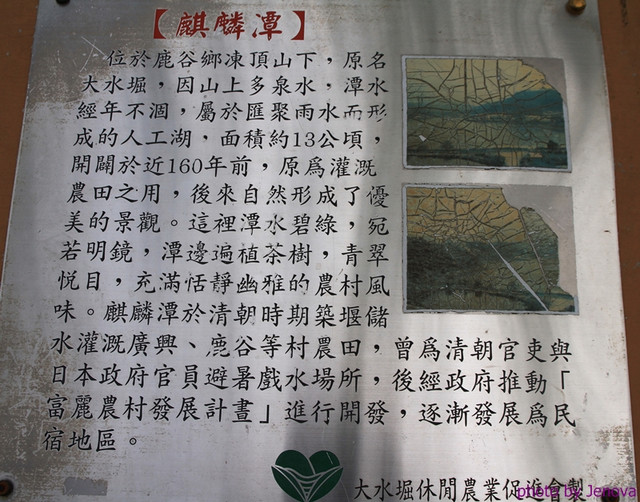 【麒麟潭】
位於鹿谷鄉凍頂山下，原名
大水堀，因山上多泉水，潭水
經年不涸，屬於匯聚雨水而形
成的人工湖，面積約13公頃，
開闢於近160年前，原爲灌溉
農田之用，後來自然形成了優
美的景觀。這裡潭水碧綠，宛
若明鏡，潭邊遍植茶樹，青翠
悅目，充滿恬靜幽雅的農村風
味。麒麟潭於清朝時期築堰儲
水灌溉廣興、鹿谷等村農田，曾爲清朝官吏與
日本政府官員避暑戲水場所，後經政府推動「
富麗農村發展計畫」進行開發，逐漸發展爲民
宿地區。
大水堀休閒農業促進會製
photo by Jenova